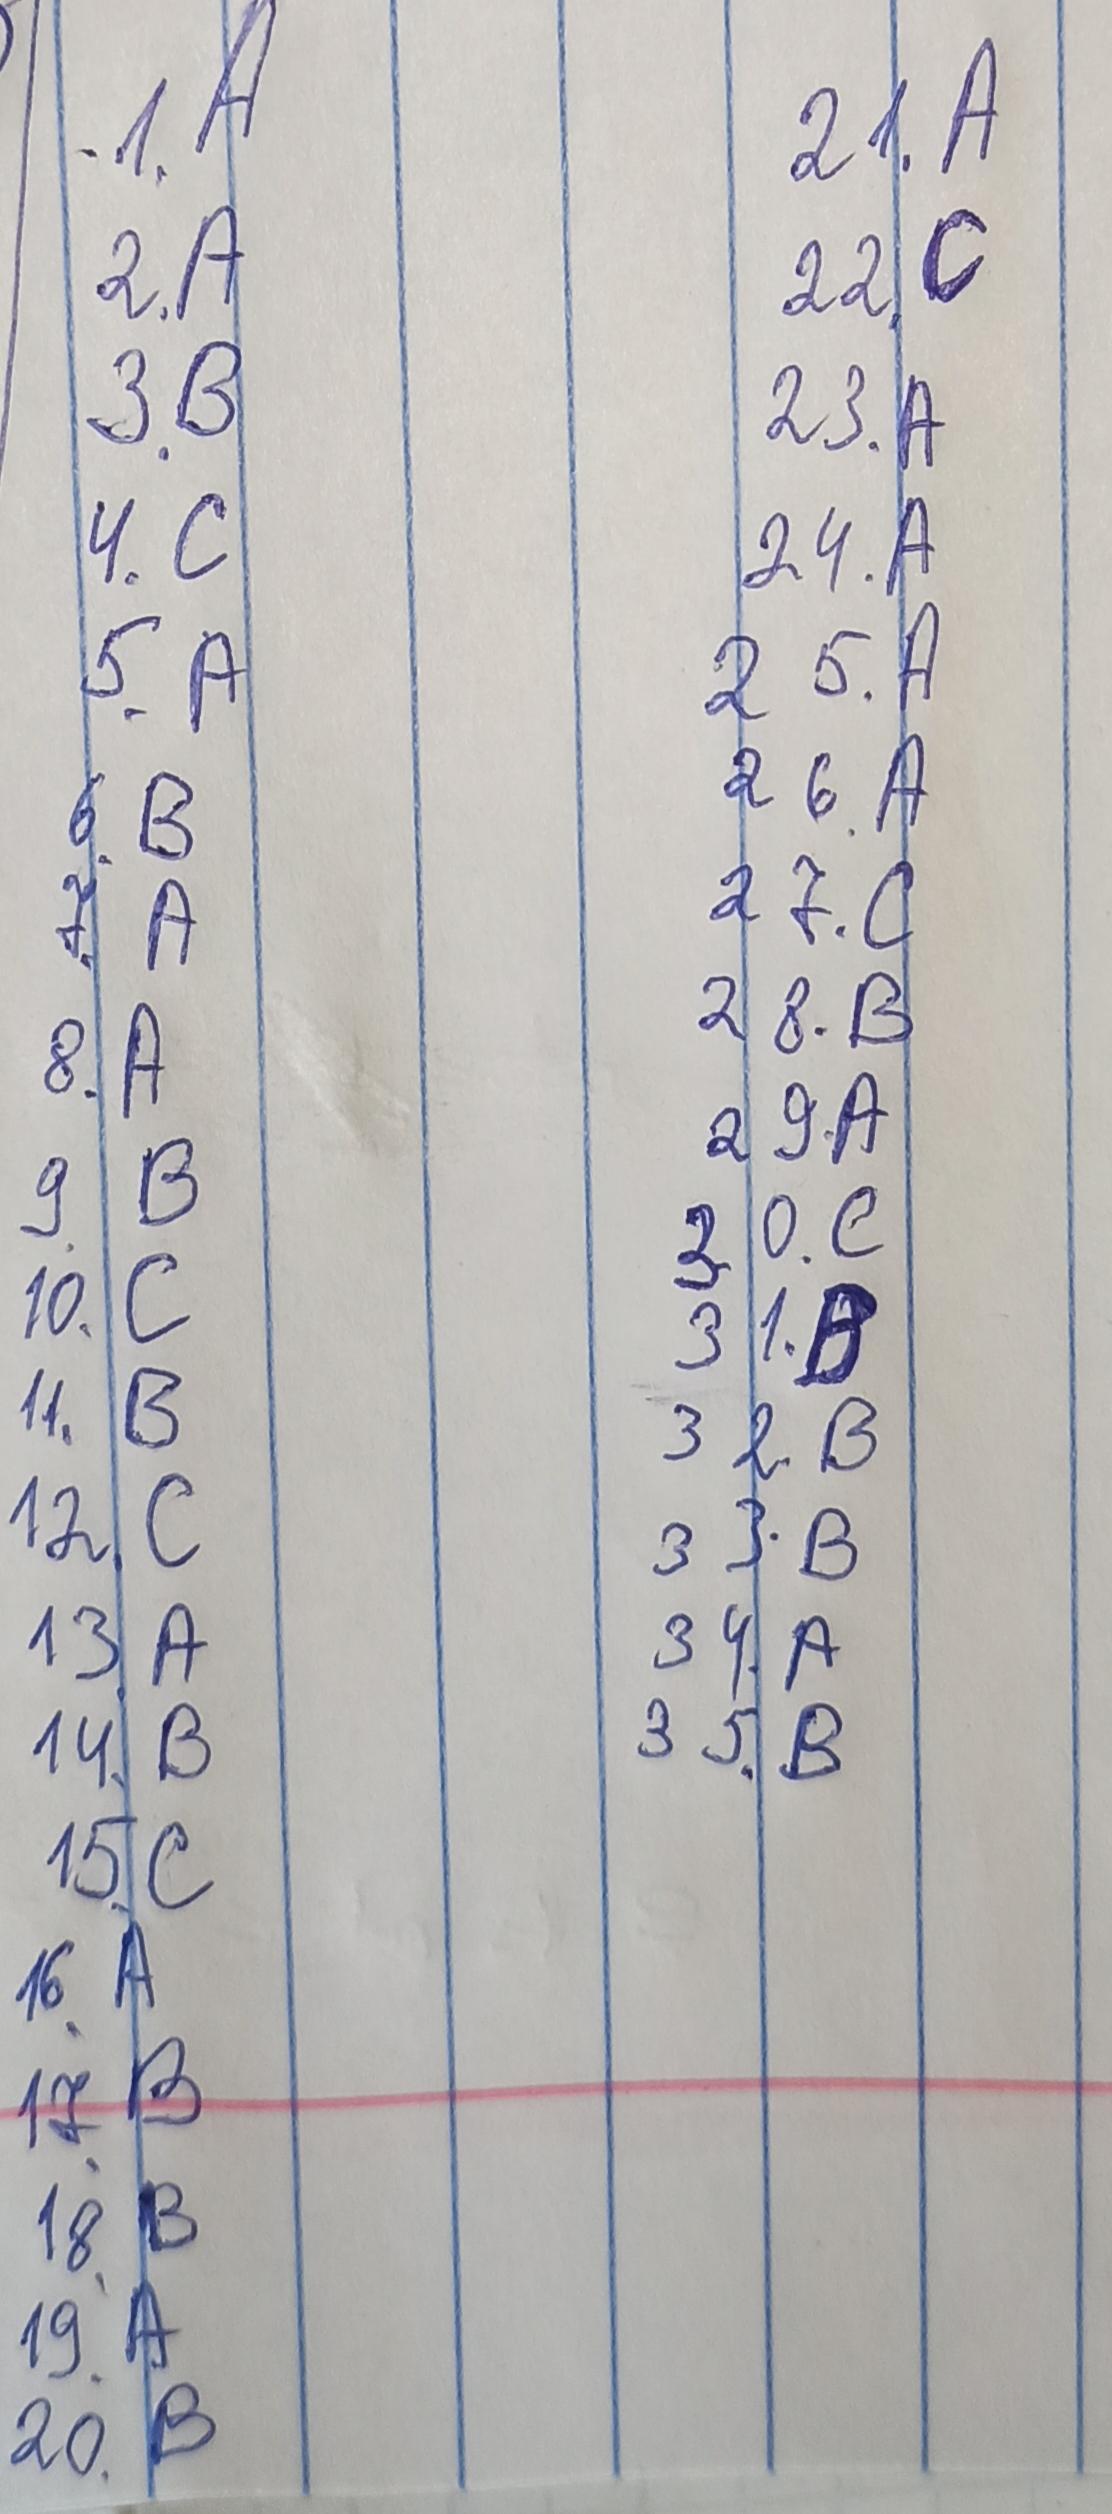 1. A
2. A
3. B
4. C
5. A
6. B
7. A
8. A
9. B
10. C
11. B
12. C
13. A
14. B
15. C
16. A
17. B
18. B
19. A
20. B
21. A
22. C
23. A
24. A
25. A
26. A
27. C
28. B
29. A
30. C
31. B
32. B
33. B
34. A
35. B